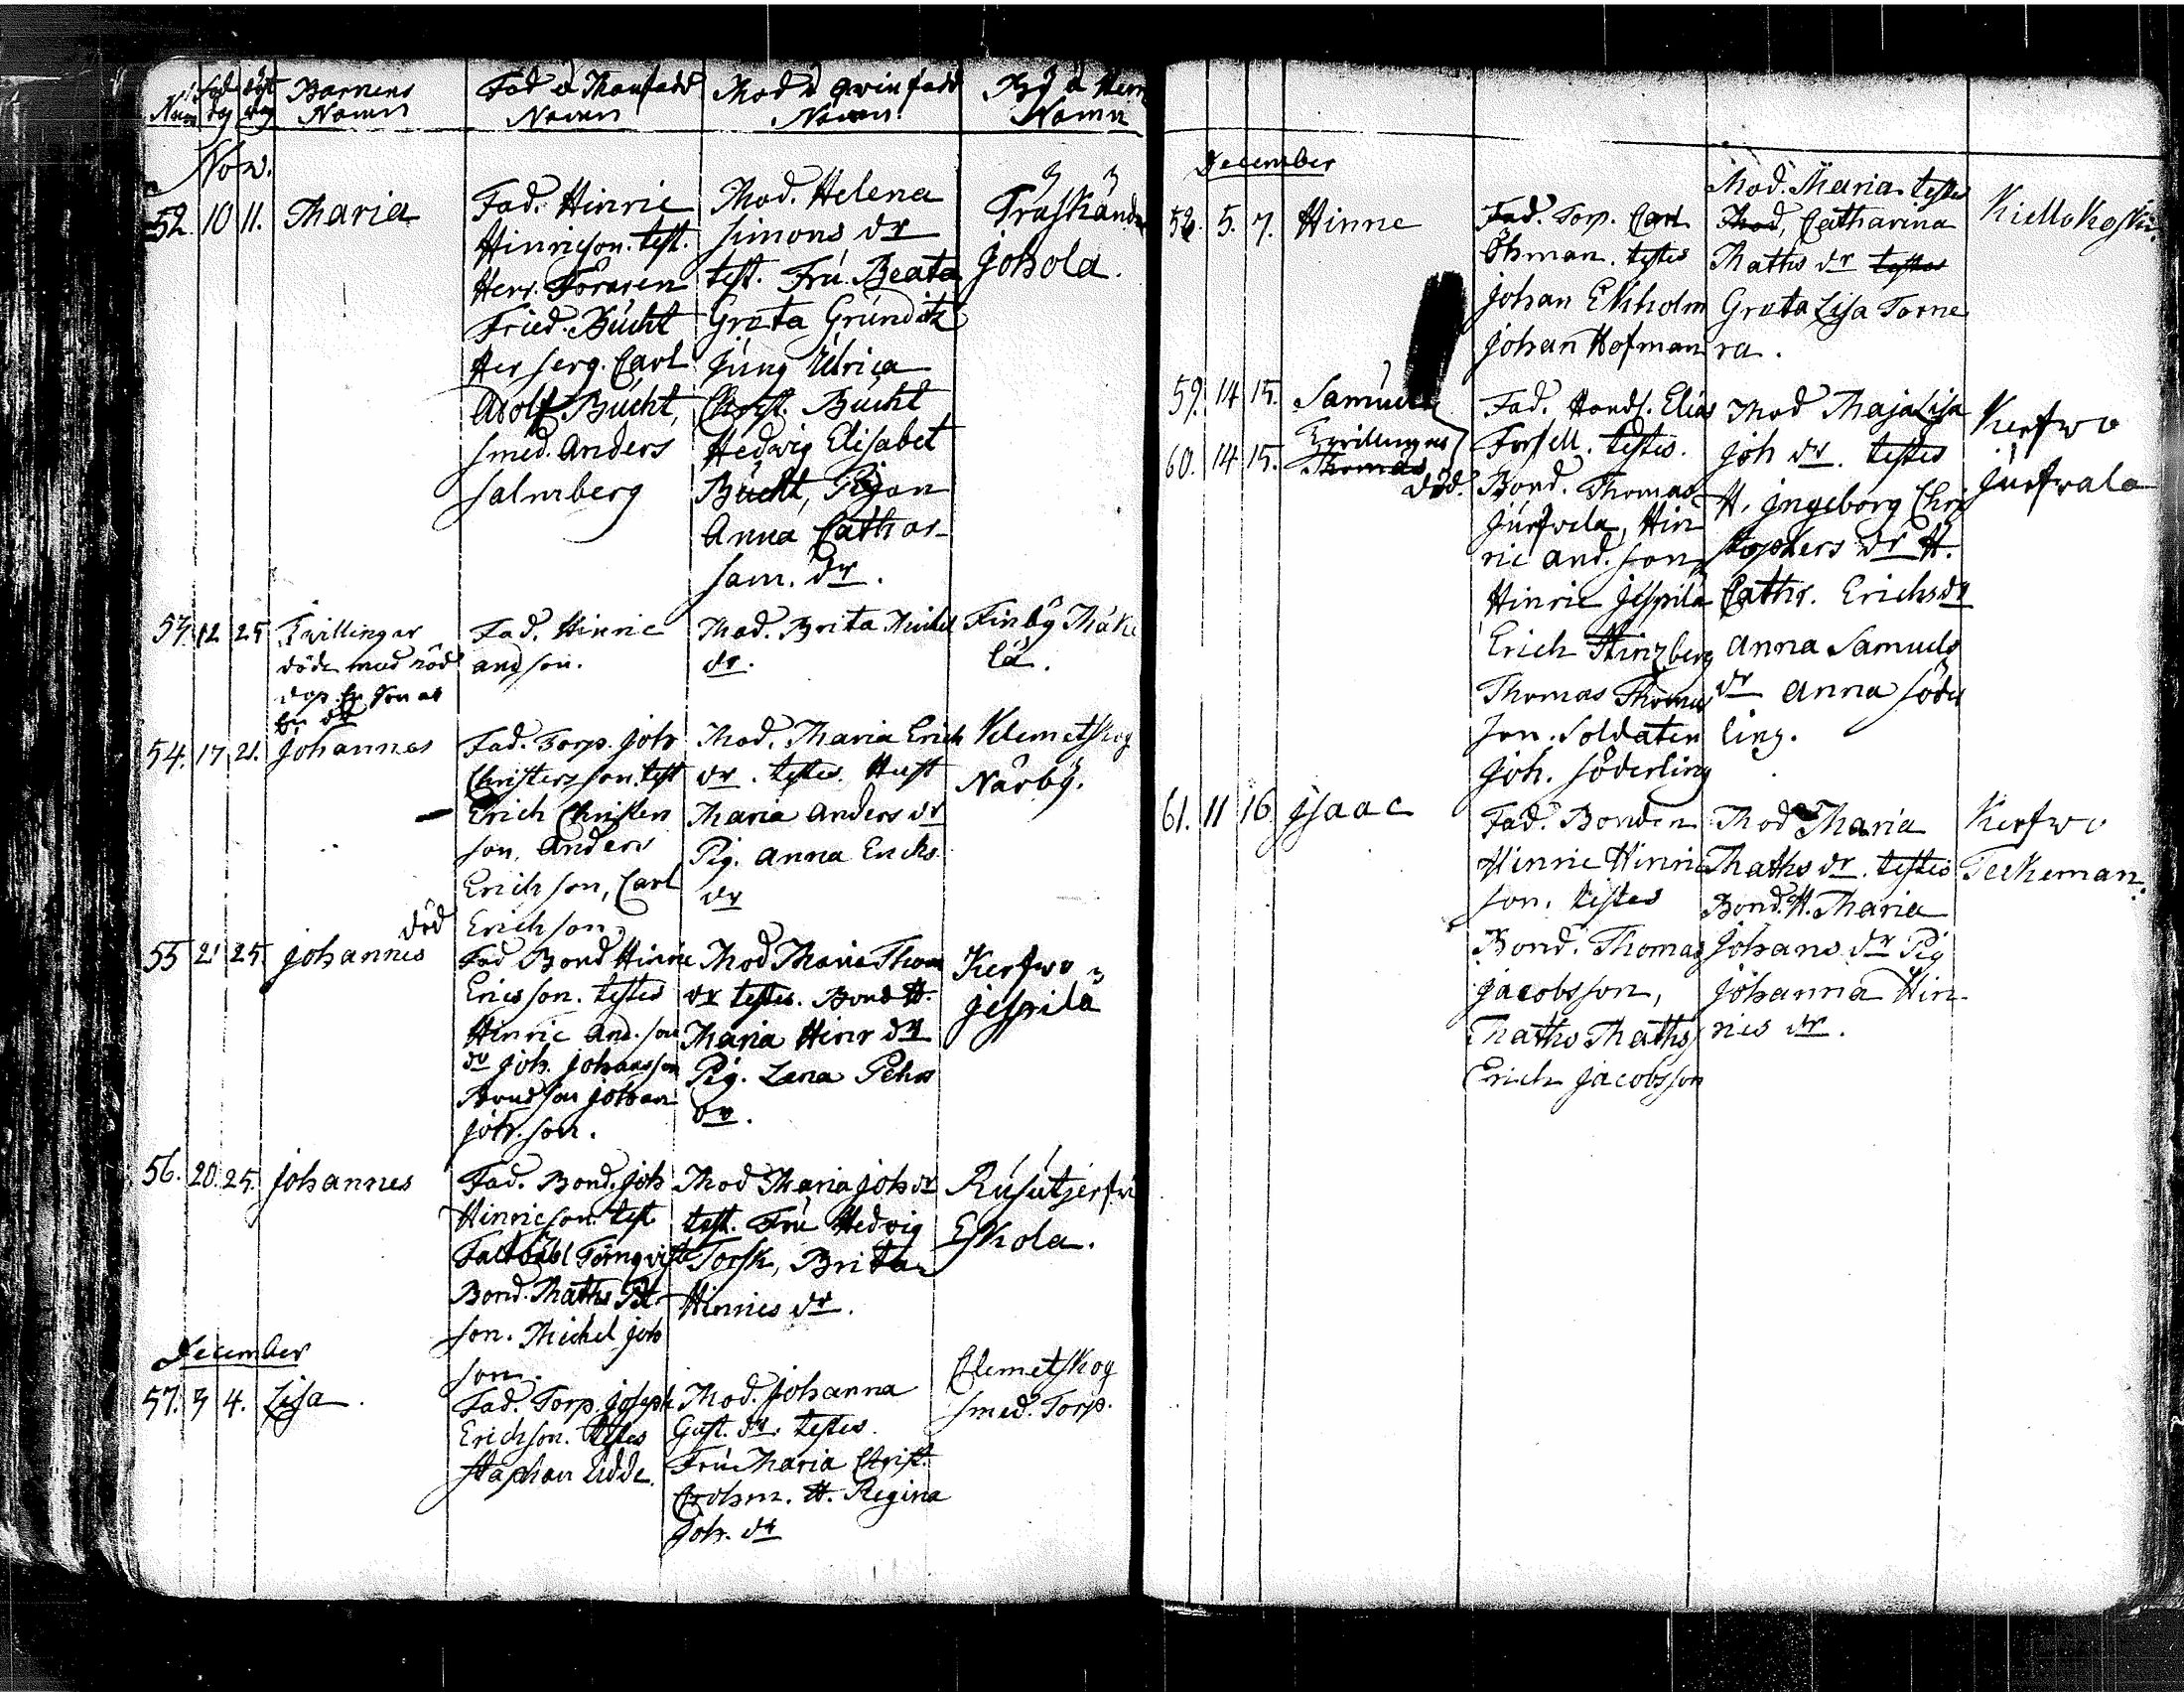 Num Föd dag döpt dag Barnens Namn
Fad. o Manfadd Namn
Mod. o Qwinfadd Namn
By o Hem Namn
Nov.
52. 10 11. Maria
Fad. Hinric
Hinricson. test.
Herr
Fried. Bucht
Her Serg. Carl
Adolf Bucht,
Smed. Anders
Salmberg
Mod. Helena
Simons dr
test. Fru Beata
Greta
Jung Ulrica
Christ. Bucht
Hedwig Elisabet
Bucht, Pigan
Anna Cathar.
Sam. dr.
Träskända
Johola.
53. 12 25 Tvillingar
döde med nöd
dop En Son o
En dr
Fad. Hinric
andson.
Mod. Brita Michel
dr.
Finby Mäke
lä.
54. 17 21. Johannes
Fad. Torp. Joh
Christersson. test
Erich Christer
son, Anders
Erichson, Carl
Erichson
Mod. Maria Erich
dr. testes. Hust
Maria Anders dr
Pig. Anna Erichs
dr
Klemetskog
Närby.
död
55 21 25. Johannes
Fad Bond Hinric
Ericsson. testes
Hinric And. son
dr Joh. Johansson
Bondson Johan
Joh. son.
Mod Maria Thom
dr testes. Bond H.
Maria Hinr dr
Pig. Lena Pehrs
dr.
Kerfwo
Jespilä
56. 20. 25. Johannes
Fad. Bond. Joh
Hinricson. test.
Törnqvist
Bond. Maths
son. Michel Joh
son.
Mod Maria Joh dr
test. Fru Hedvig
Torsk, Brita
Hinrics dr.
Rusutjerfwi
Eskola.
December
57. 3 4. Lisa
Fad. Torp. Joseph
Erichson. testes
Staphan Udde.
Mod. Johanna
Gust. dr. testes.
Fru Maria Christ.
H. Regina
Joh. dr
Clemetskog
Smed. Torp.
December
58. 5. 7. Hinric
Fad. Torp. Carl
Öhman. testes
Johan Ekholm
Johan Hofman
Mod. Maria testes
Mod, Catharina
Maths dr testes
Greta Lisa Torne
ra.
Kiellokoski.
59. 14 15. Samuel
Tvillingar
60. 14 15. Thomas
död.
Fad. Handl. Elias
Forsell. testes.
Bond. Thomas
Jurfwala, Hin
ric And. son
Hinric Jespilä
Erich
Thomas Thomas
son. Soldaten
Joh. Söderling
Mod Maja Lisa
Joh dr. testes
H. Ingeborg Chri
stophers dr H.
Cathr. Erichs dr
Anna Samuels
dr Anna Söder
ling.
Kerfwo
Jurfwala
61. 11 16 Isaac
Fad. Bonden
Hinric Hinric
son. testes
Bond. Thomas
Jacobsson,
Maths Maths
Erich Jacobsson
Mod Maria
Maths dr. testes
Bond. H. Maria
Johans dr Pig
Johanna Hin
rics dr.
Kerfwo
Teckeman.